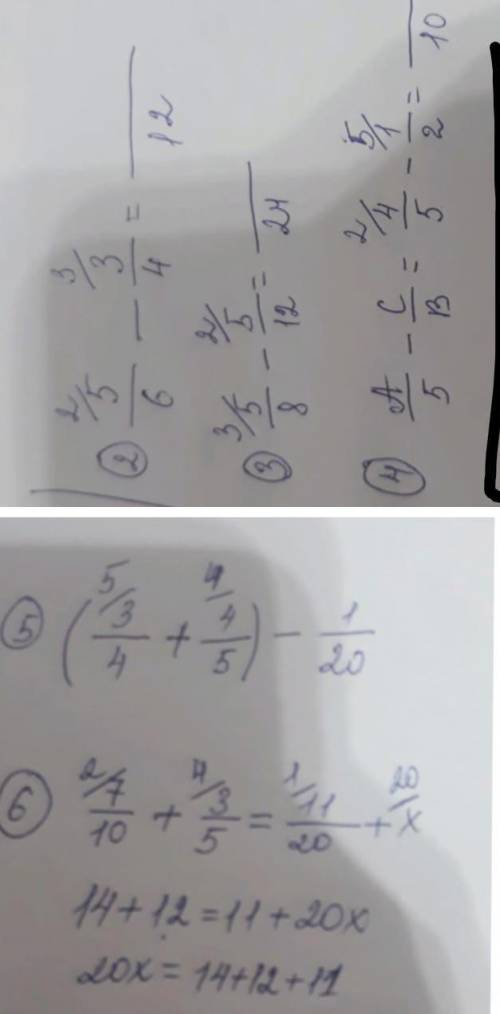 ② 2/ 5/6 - 3/ 3/4 = /12
③ 3/ 5/8 - 2/ 5/12 = /24
④ A/5 - C/B = 2/ 4/5 - 5/ 1/2 = /10
⑤ (5/ 3/4 + 4/ 4/5) - 1/20
⑥ 2/ 7/10 + 4/ 3/5 = 1/ 11/20 + 20/ x
14+12=11+20x
20x=14+12+11